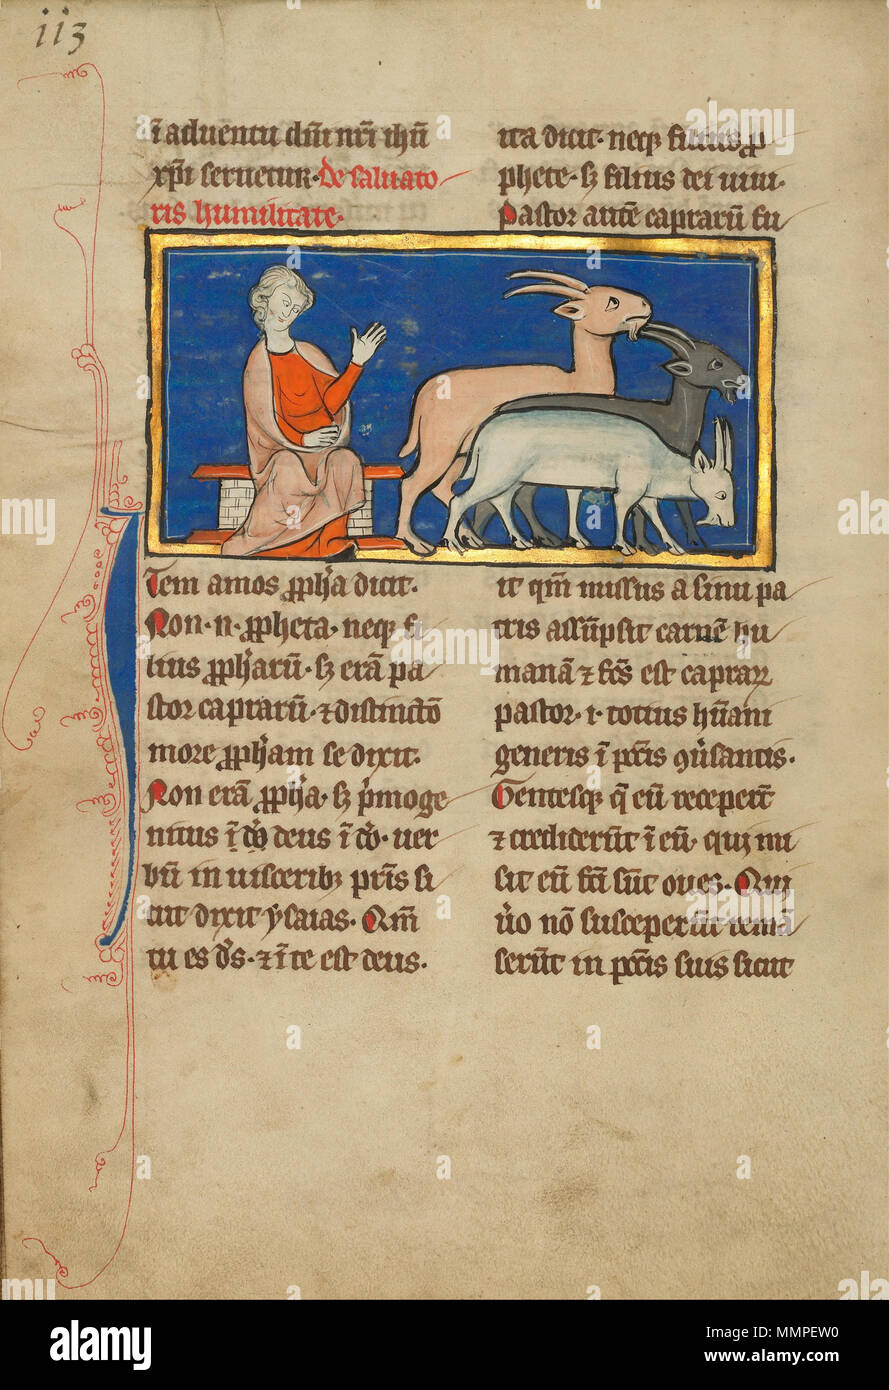 113
ī aduentu dn̄i nr̄i ihū
xp̄i seruetur. De saluato
ris humilitate.
Item amos ꝓph̄a dicit.
Non. n. ꝓpheta. neqꝫ fi
lius ꝓph̄arū. sꝫ erā pa
stor caprarū. ⁊ distincto
more ꝓph̄am se dixit.
Non erā ꝓph̄a. sꝫ p̄moge
nitus ī do deus ī do. uer
bū in uisceribꝫ pr̄is si
cut dixit ysaias. Qm̄
tu es ds̄. ⁊ ī te est deus.
ita dicit. neqꝫ filius ꝓ
phete. sꝫ filius dei uiui.
Pastor autē caprarū fu
it qm̄ missus a sinu pa
tris assūpsit carnē hu
manā ⁊ fcs̄ est capraꝝ
pastor. i. totius hūani
generis ī pcc̄is ꝯuersantis.
Gentesqꝫ q̄ eū recepert̄
⁊ crediderūt ī eū. qui mi
sit eū fcē sūt oues. Qui
ūo nō susceperūt remā
serūt in pcc̄is suis sicut
alamy
Image ID: MMPEW0
www.alamy.com